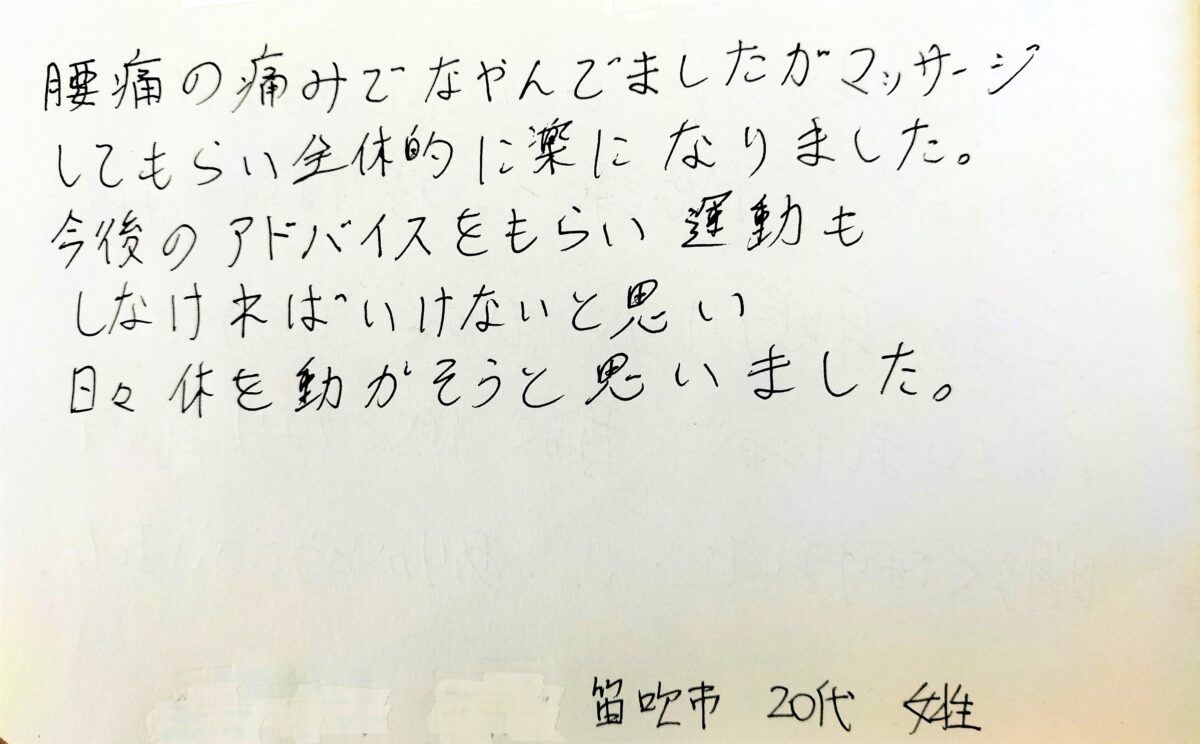 腰痛の痛みでなやんでましたがマッサージ
してもらい全体的に薬になりました。
今後のアドバイスをもらい運動も
しなければいけないと思い
日々体を動がそうと思いました。
笛吹市 20代 女性